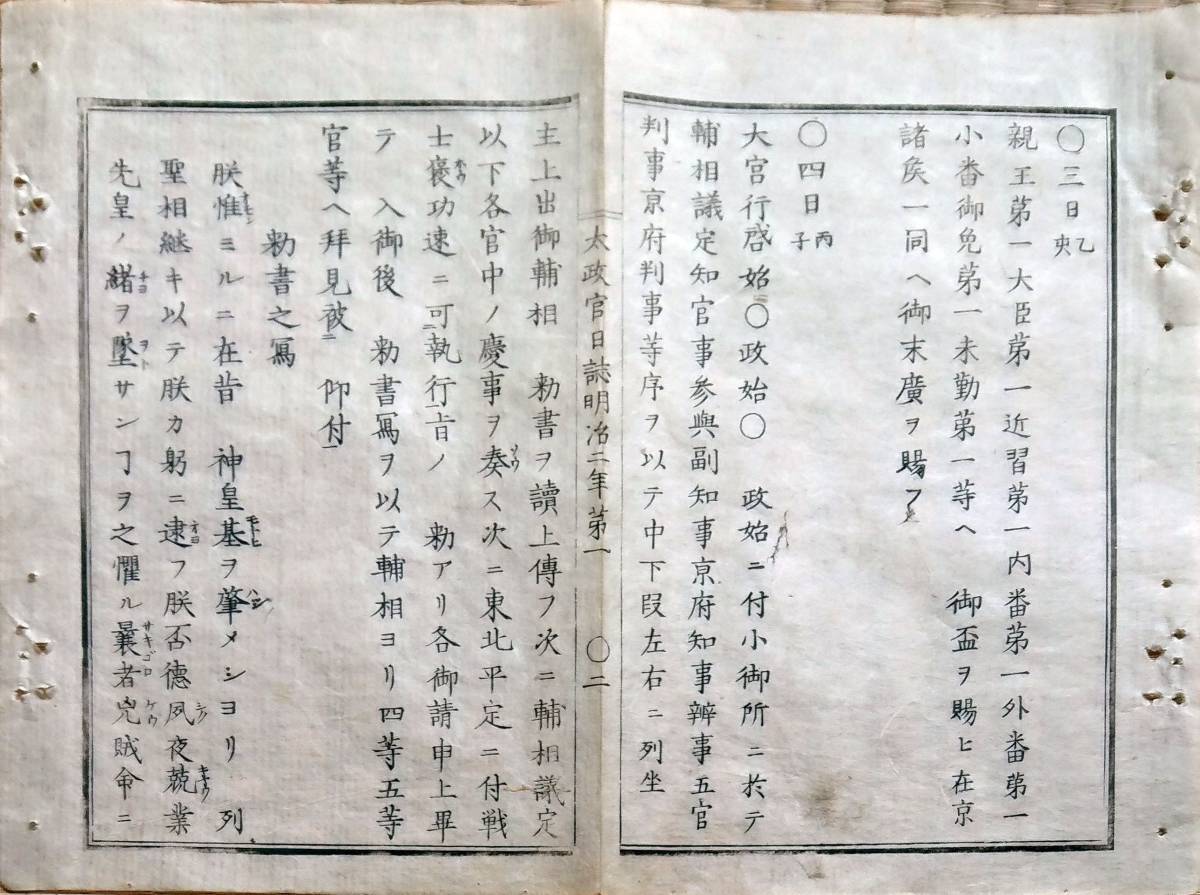 〇三日乙亥
親王第一大臣第一近習第一内番第一外番第一
小番御免第一未勤第一等ヘ 御盃ヲ賜ヒ在京
諸矦一同ヘ御末廣ヲ賜フ
〇四日丙子
大宮行啓始〇政始〇 政始ニ付小御所ニ於テ
輔相議定知官事參與副知事京府知事辨事五官
判事京府判事等序ヲ以テ中下段左右ニ列坐
太政官日誌明治二年第一 〇二
主上出御輔相 勅書ヲ讀上傳フ次ニ輔相議定
以下各官中ノ慶事ヲ奏ス次ニ東北平定ニ付戦
士褒功速ニ可執行旨ノ 勅アリ各御請申上畢
テ 入御後 勅書寫ヲ以テ輔相ヨリ四等五等
官等ヘ拜見被 仰付
勅書之寫
朕惟ミルニ在昔 神皇基ヲ肇メシヨリ 列
聖相繼キ以テ朕カ躬ニ逮フ朕否德夙夜兢業
先皇ノ緒ヲ墜サンヿヲ之懼ル曩者兇賊命ニ